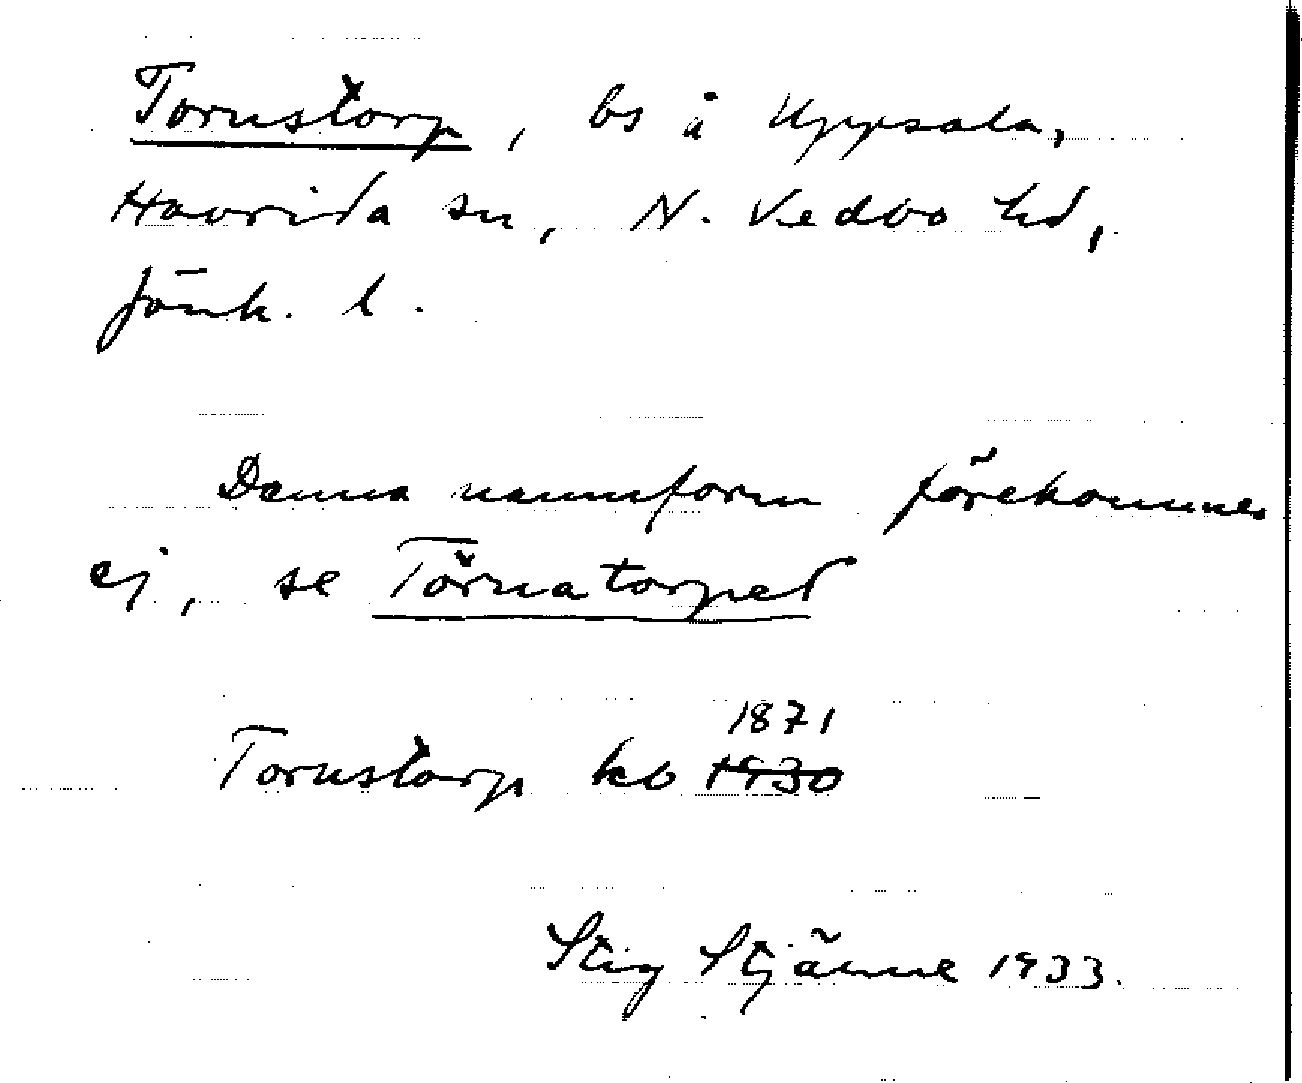 Tornstorp, bs å Uppsala,
Haurida sn, N. Vedbo hd,
Jönk. l.
Denna namnform förekommer
ej, se Törnatorpet
1871
Tornstorp kb 1930
Stig Stjärne 1933.